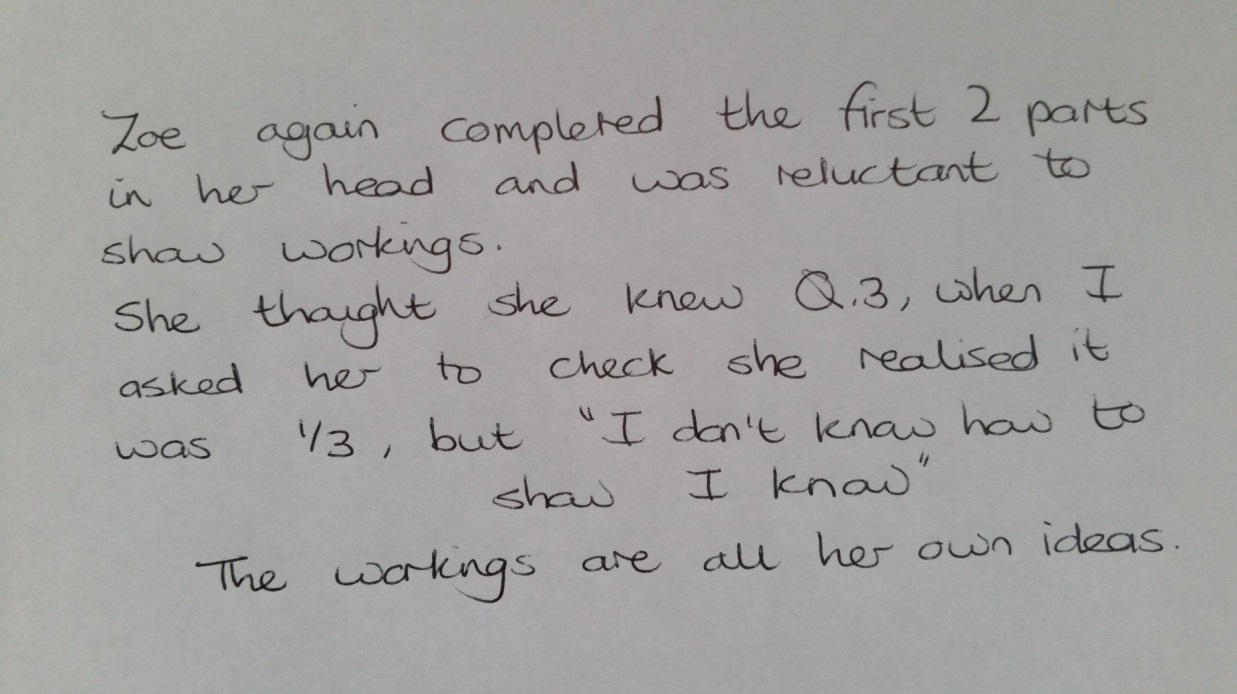 Zoe again completed the first 2 parts
in her head and was reluctant to
show workings.
She thought she knew Q.3, when I
asked her to check she realised it
was 1/3, but "I don't know how to
show I know"
The workings are all her own ideas.